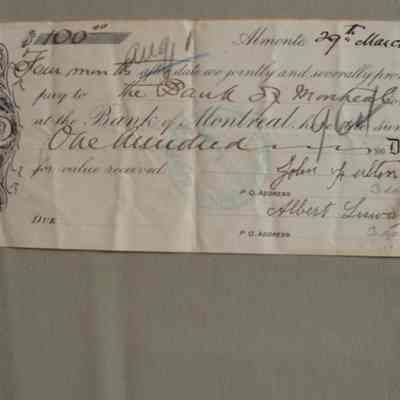 $100.00 Almonte 29th March
Aug 1
Four months after date we jointly and severally pro
pay to the Bank of Montreal
at the Bank of Montreal, here the sum
One Hundred 100 D
for value received. John
P.O. ADDRESS
Albert
DUE
P.O. ADDRESS